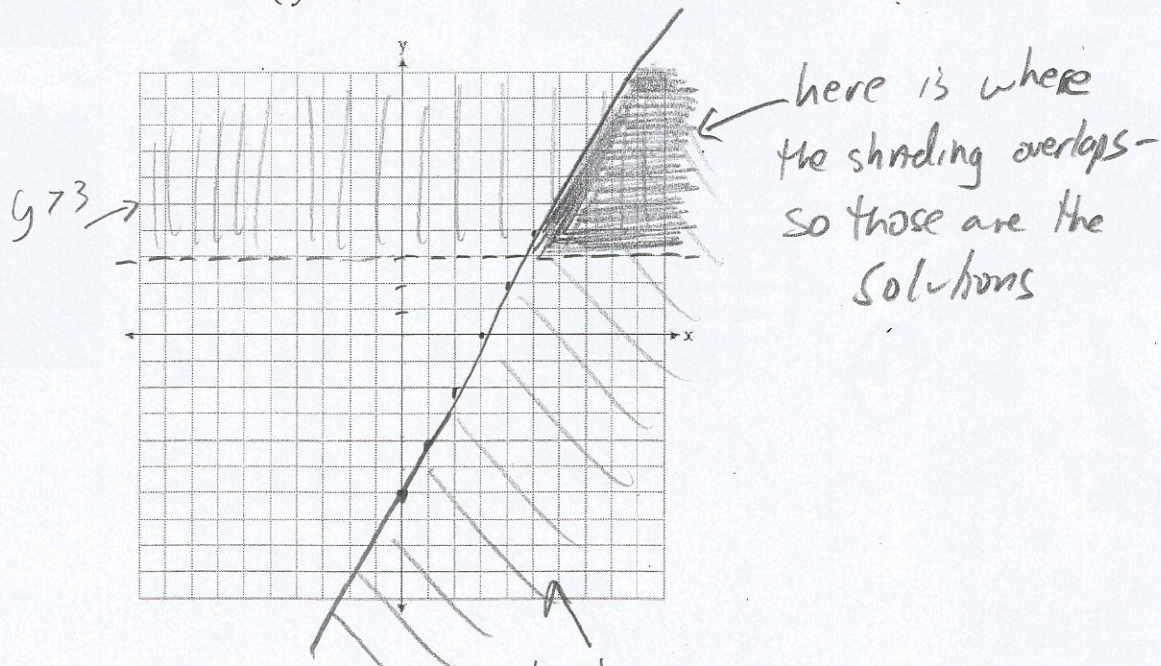 y
y > 3
here is where
the shading overlaps-
so those are the
solutions
x